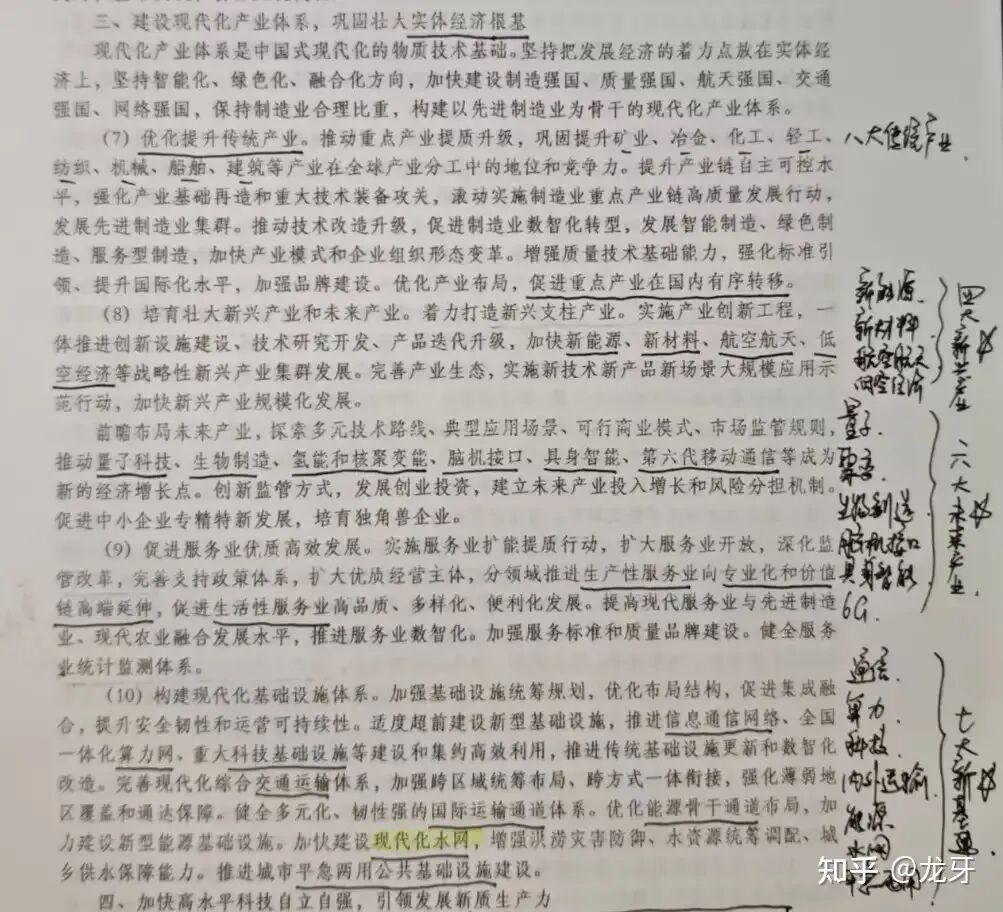 三、建设现代化产业体系，巩固壮大实体经济根基
现代化产业体系是中国式现代化的物质技术基础。坚持把发展经济的着力点放在实体经
济上，坚持智能化、绿色化、融合化方向，加快建设制造强国、质量强国、航天强国、交通
强国、网络强国，保持制造业合理比重，构建以先进制造业为骨干的现代化产业体系。
（7）优化提升传统产业。推动重点产业提质升级，巩固提升矿业、冶金、化工、轻工、
纺织、机械、船舶、建筑等产业在全球产业分工中的地位和竞争力。提升产业链自主可控水
平，强化产业基础再造和重大技术装备攻关，滚动实施制造业重点产业链高质量发展行动，
发展先进制造业集群。推动技术改造升级，促进制造业数智化转型，发展智能制造、绿色制
造、服务型制造，加快产业模式和企业组织形态变革。增强质量技术基础能力，强化标准引
领、提升国际化水平，加强品牌建设。优化产业布局，促进重点产业在国内有序转移。
（8）培育壮大新兴产业和未来产业。着力打造新兴支柱产业。实施产业创新工程，一
体推进创新设施建设、技术研究开发、产品迭代升级，加快新能源、新材料、航空航天、低
空经济等战略性新兴产业集群发展。完善产业生态，实施新技术新产品新场景大规模应用示
范行动，加快新兴产业规模化发展。
前瞻布局未来产业，探索多元技术路线、典型应用场景、可行商业模式、市场监管规则，
推动量子科技、生物制造、氢能和核聚变能、脑机接口、具身智能、第六代移动通信等成为
新的经济增长点。创新监管方式，发展创业投资，建立未来产业投入增长和风险分担机制。
促进中小企业专精特新发展，培育独角兽企业。
（9）促进服务业优质高效发展。实施服务业扩能提质行动，扩大服务业开放，深化监
管改革，完善支持政策体系，扩大优质经营主体，分领域推进生产性服务业向专业化和价值
链高端延伸，促进生活性服务业高品质、多样化、便利化发展。提高现代服务业与先进制造
业、现代农业融合发展水平，推进服务业数智化。加强服务标准和质量品牌建设。健全服务
业统计监测体系。
（10）构建现代化基础设施体系。加强基础设施统筹规划，优化布局结构，促进集成融
合，提升安全韧性和运营可持续性。适度超前建设新型基础设施，推进信息通信网络、全国
一体化算力网、重大科技基础设施等建设和集约高效利用，推进传统基础设施更新和数智化
改造。完善现代化综合交通运输体系，加强跨区域统筹布局、跨方式一体衔接，强化薄弱地
区覆盖和通达保障。健全多元化、韧性强的国际运输通道体系。优化能源骨干通道布局，加
力建设新型能源基础设施。加快建设现代化水网，增强洪涝灾害防御、水资源统筹调配、城
乡供水保障能力。推进城市平急两用公共基础设施建设。
四、加快高水平科技自立自强，引领发展新质生产力
八大传统产业
新能源
新材料
航空航天
低空经济
四大新兴产业
量子
聚变
生物制造
脑机接口
具身智能
6G
六大未来产业
通信
算力
科技
内外运输
能源
水网
七大新基建
知乎 @龙牙